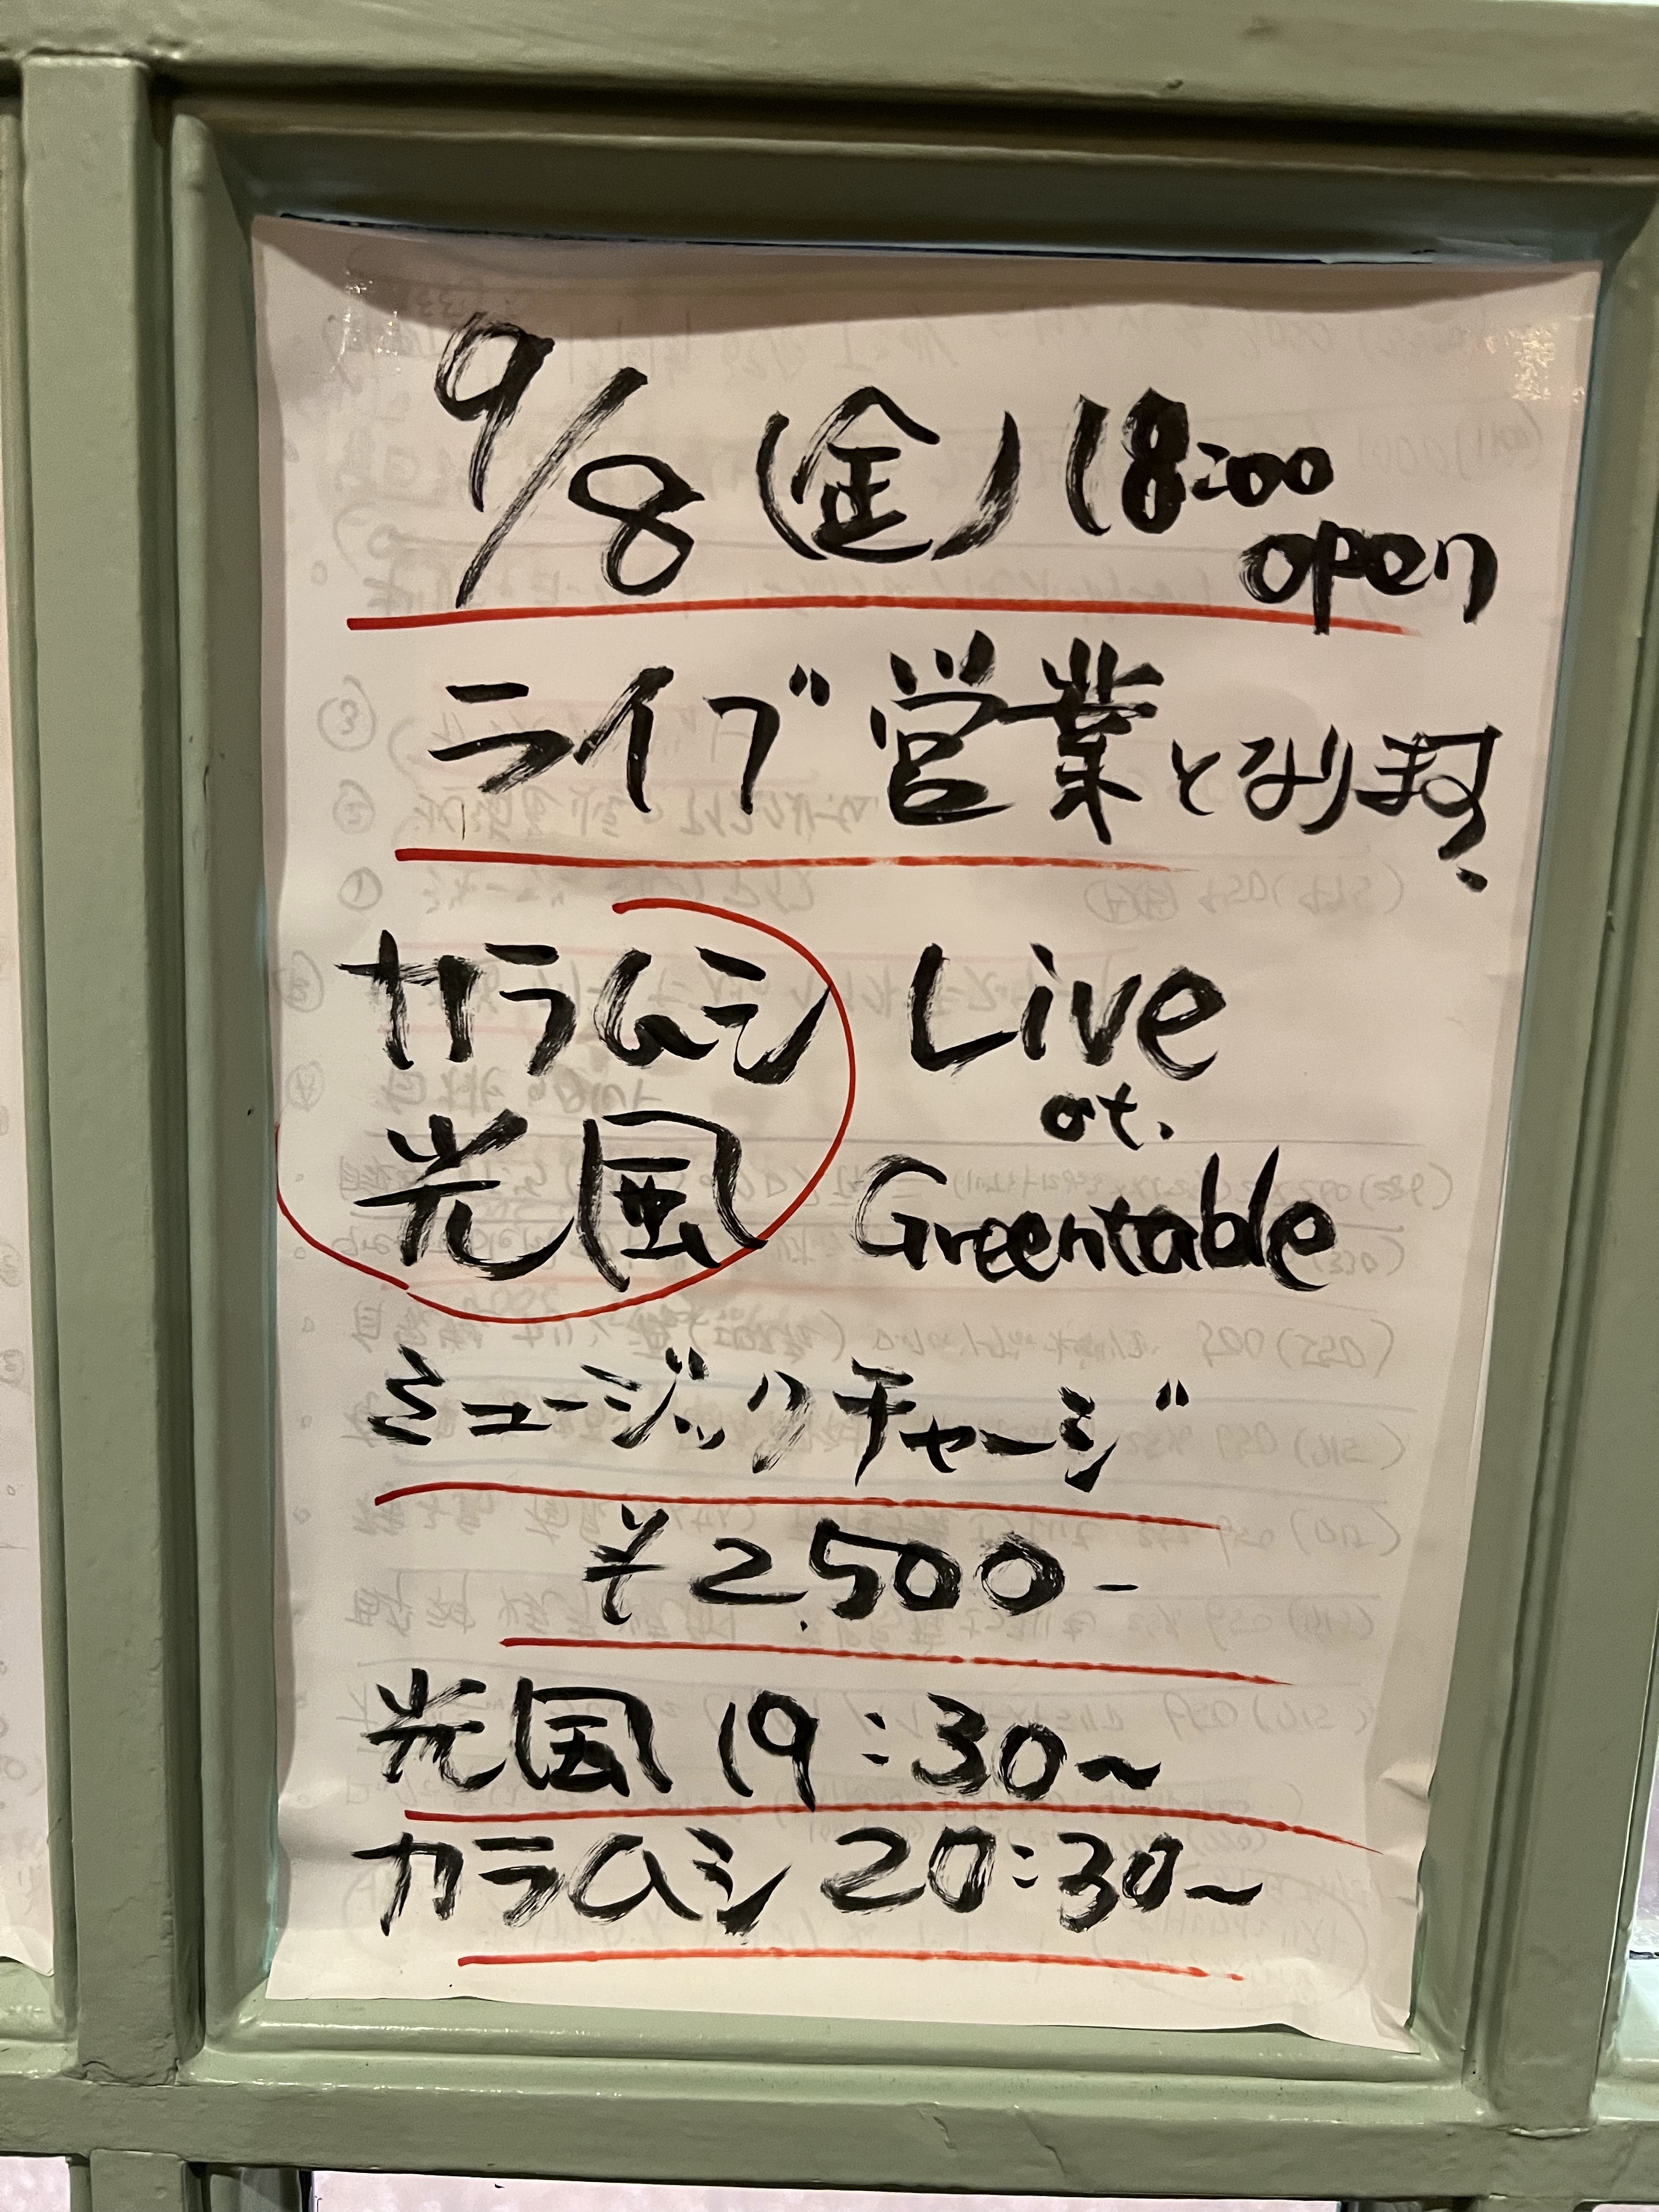 9/8(金) 18:00
open
ライブ営業となります。
カラムシ Live
光風 at.
Greentable
ミュージックチャージ
¥2,500-
光風 19:30~
カラムシ 20:30~